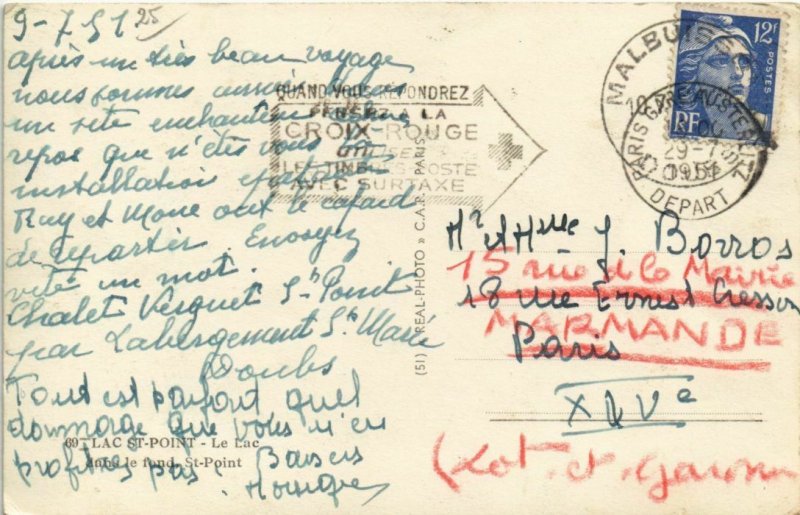 9-7 51
25
après un très beau voyage
nous sommes
un site enchanteur
repos que n'êtes vous
installation parfaite
Ray et Mone ont le cafard
de repartir. Envoyez
vite un mot.
Chalet Verguet St Point
par Labergement Ste Marie
Doubs
Tout est parfait quel
dommage que vous n'en
profitiez pas. Baisers
Monique
69 - LAC ST-POINT - Le Lac
dans le fond, St-Point
QUAND VOUS RÉPONDREZ
PENSEZ A LA
CROIX-ROUGE
UTILISEZ
LES TIMBRES-POSTE
AVEC SURTAXE
(51) « REAL-PHOTO » C.A.P. PARIS
12F
POSTES
RF
MALBUISSON
PARIS GARE AUSTERLITZ
29-7
1951
DEPART
Mr et Melle J. Borros
15 rue de la Mairie
18 rue Ernest Cresson
MARMANDE
Paris
XIVe
(Lot-et-Garonne